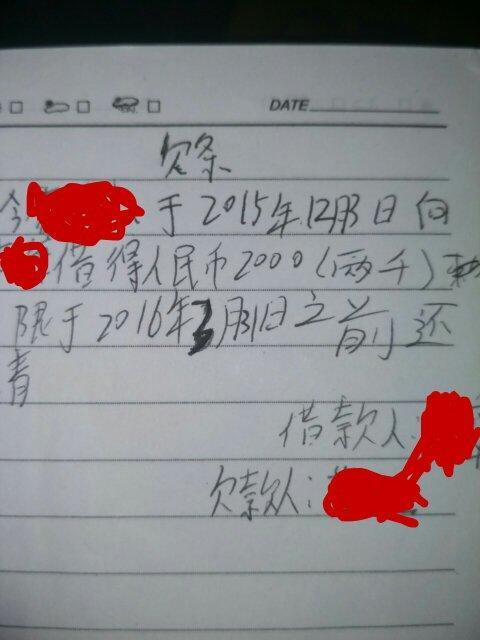 DATE
欠条
今 于2015年12月 日向
借得人民币2000(两千)
限于2016年3月31日之前还
青
借款人:
欠款人: